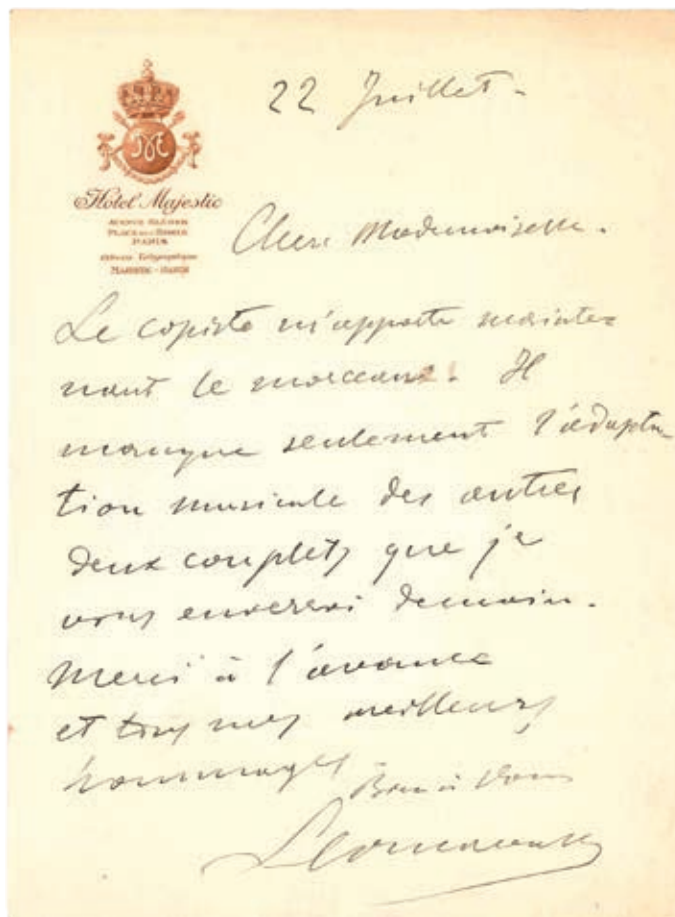 22 Juillet.
Hôtel Majestic
AVENUE KLÉBER
PARIS
Adresse Télégraphique
MAJESTIC - PARIS
Chere Mademoiselle.
Le copiste m'apporte mainte
nant le morceau. Il
manque seulement l'adapta
tion musicale des autres
deux couplets que je
vous enverrai demain.
Merci à l'avance
et tous mes meilleurs
hommages
Bien à Vous